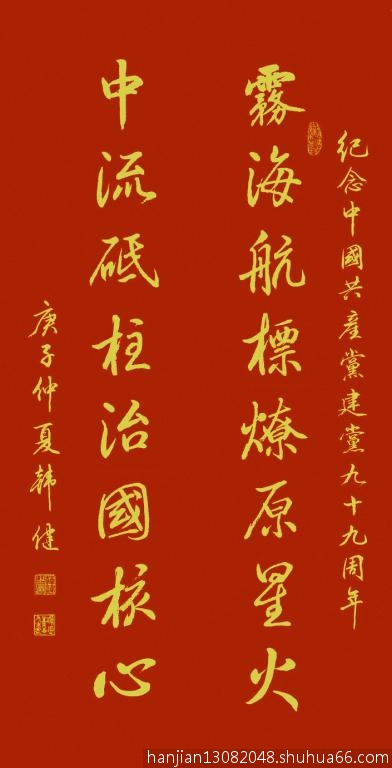 紀念中國共産黨建黨九十九周年
霧海航標燎原星火
中流砥柱治國核心
庚子仲夏韩健
hanjian13082048.shuhua66.com